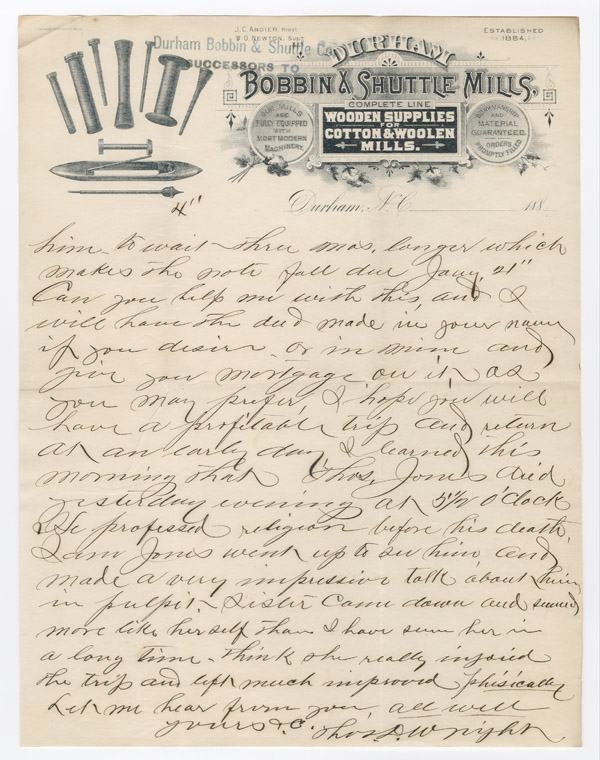 J. C. ANGIER, Prest.
W. G. NEWTON, Supt.
ESTABLISHED
1884.
Durham Bobbin & Shuttle Co
SUCCESSORS TO
DURHAM
BOBBIN & SHUTTLE MILLS,
COMPLETE LINE
WOODEN SUPPLIES
FOR
COTTON & WOOLEN
MILLS.
OUR MILLS
ARE
FULLY EQUIPPED
WITH
MOST MODERN
MACHINERY.
WORKMANSHIP
AND
MATERIAL
GUARANTEED.
ORDERS
PROMPTLY FILLED
4"
Durham, N.C. 188
him to wait three mos. longer which
makes the note fall due Jany, 21"
Can you help me with this, and I
will have the deed made in your name
if you desire or in mine and
give you mortgage on it, as
you may prefer, I hope you will
have a profitable trip and return
at an early day I learned this
morning that Thos, Jones died
yesterday evening at 5½ O'Clock
He professed religion before his death,
Sam Jones went up to see him and
made a very impressive talk about him
in pulpit. Sister Came down and seemed
more like herself than I have seen her in
a long time. think she really injoied
the trip and left much improved phisically
Let me hear from you, all well
yours &C. Thos. D. Wright